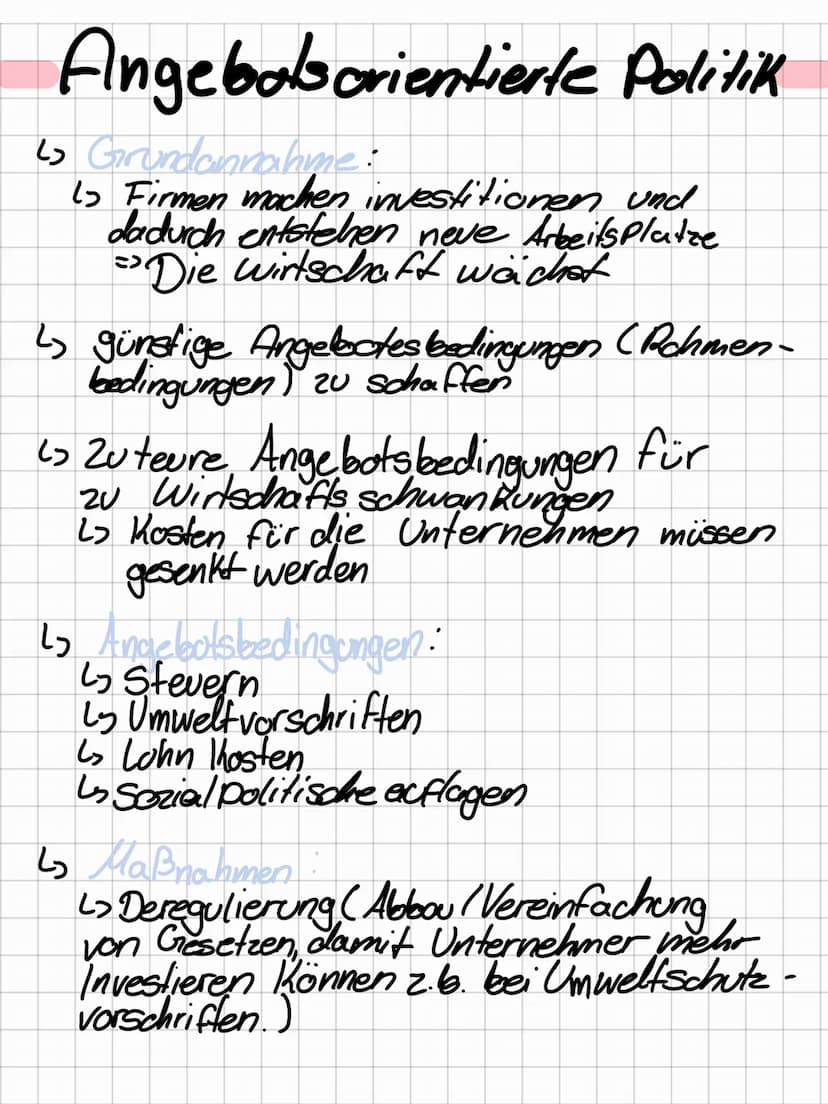 Angebotsorientierte Politik
↳ Grundannahme:
↳ Firmen machen investitionen und
dadurch entstehen neue Arbeitsplätze
=> Die Wirtschaft wächst
↳ günstige Angebotesbedingungen (Rahmen-
bedingungen) zu schaffen
↳ Zu teure Angebotsbedingungen für
zu Wirtschaftsschwankungen
↳ Kosten für die Unternehmen müssen
gesenkt werden
↳ Angebotsbedingungen:
↳ Steuern
↳ Umweltvorschriften
↳ Lohn Kosten
↳ Sozialpolitische auflagen
↳ Maßnahmen:
↳ Deregulierung (Abbau/Vereinfachung
von Gesetzen, damit Unternehmer mehr
Investieren Können z.b. bei Umweltschutz-
vorschriften.)